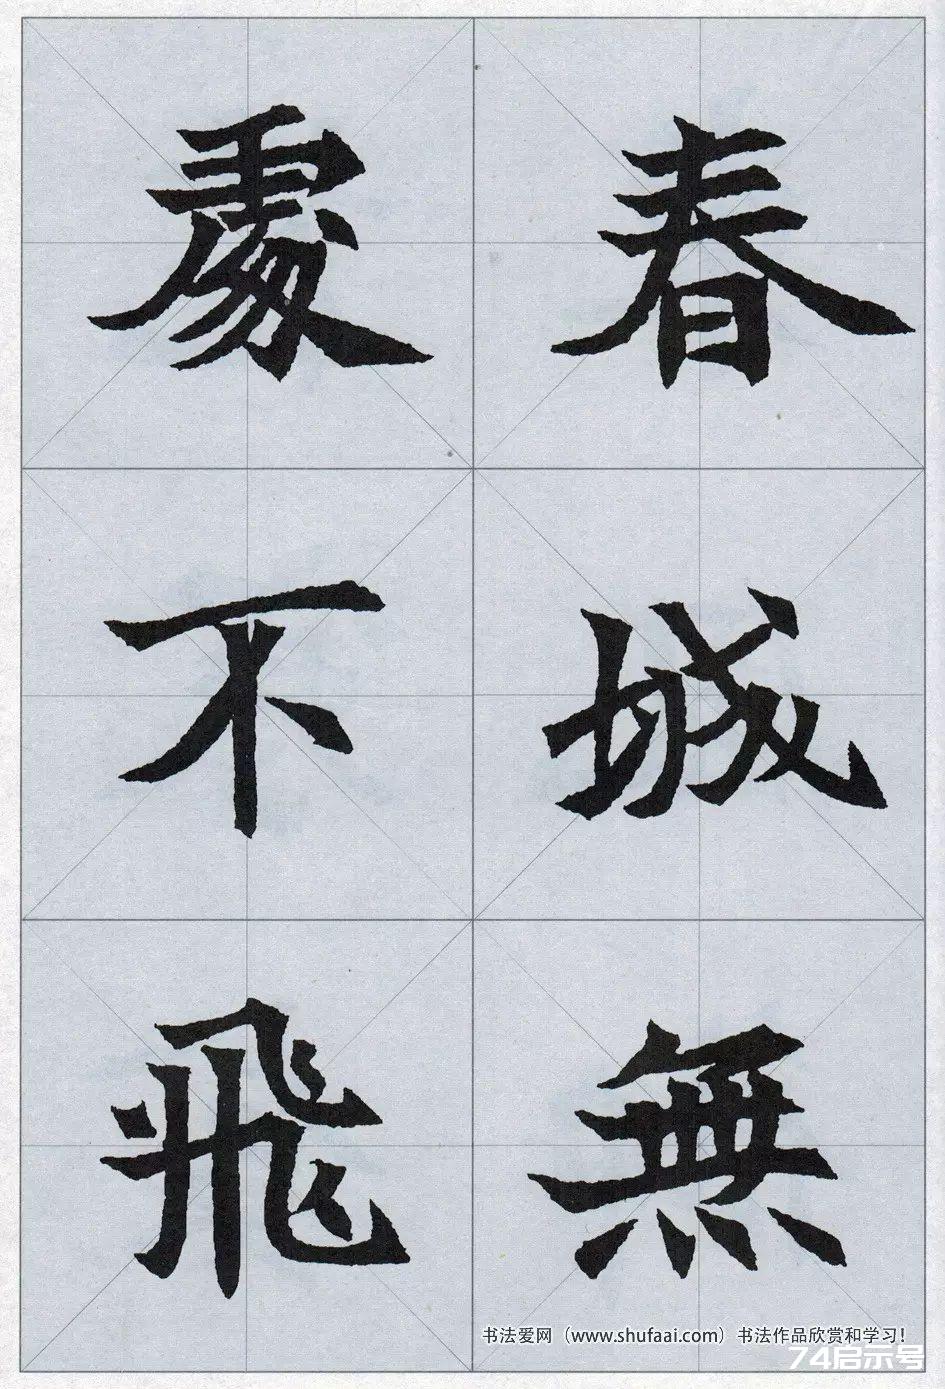 春城無
處不飛
书法爱网（www.shufaai.com）书法作品欣赏和学习！
74启示号